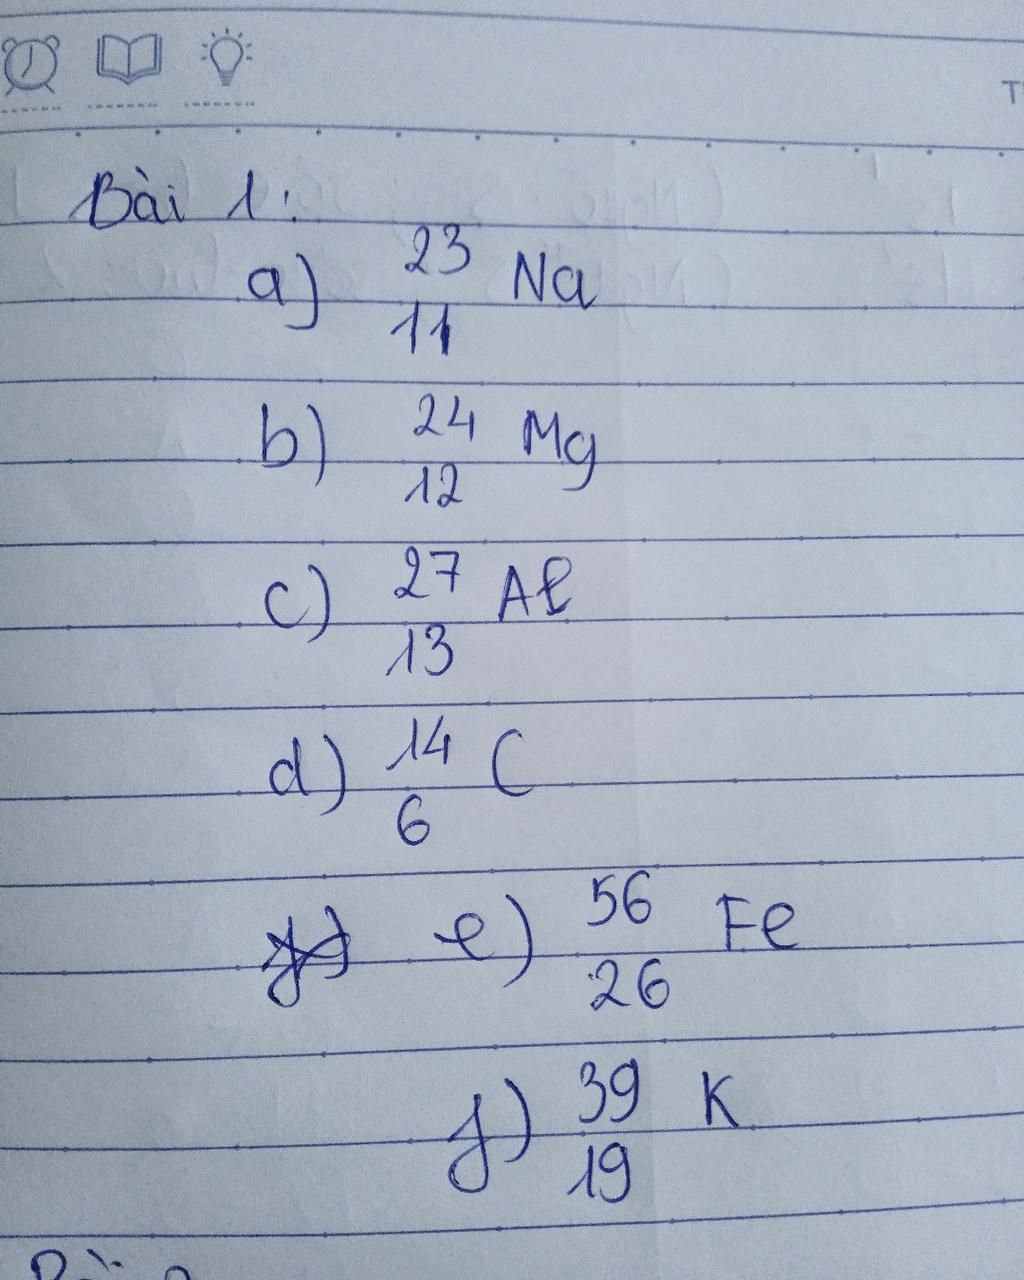 Bài 1:
a) 23 Na
11
b) 24 Mg
12
c) 27 Al
13
d) 14 C
6
e) 56 Fe
26
f) 39 K
19